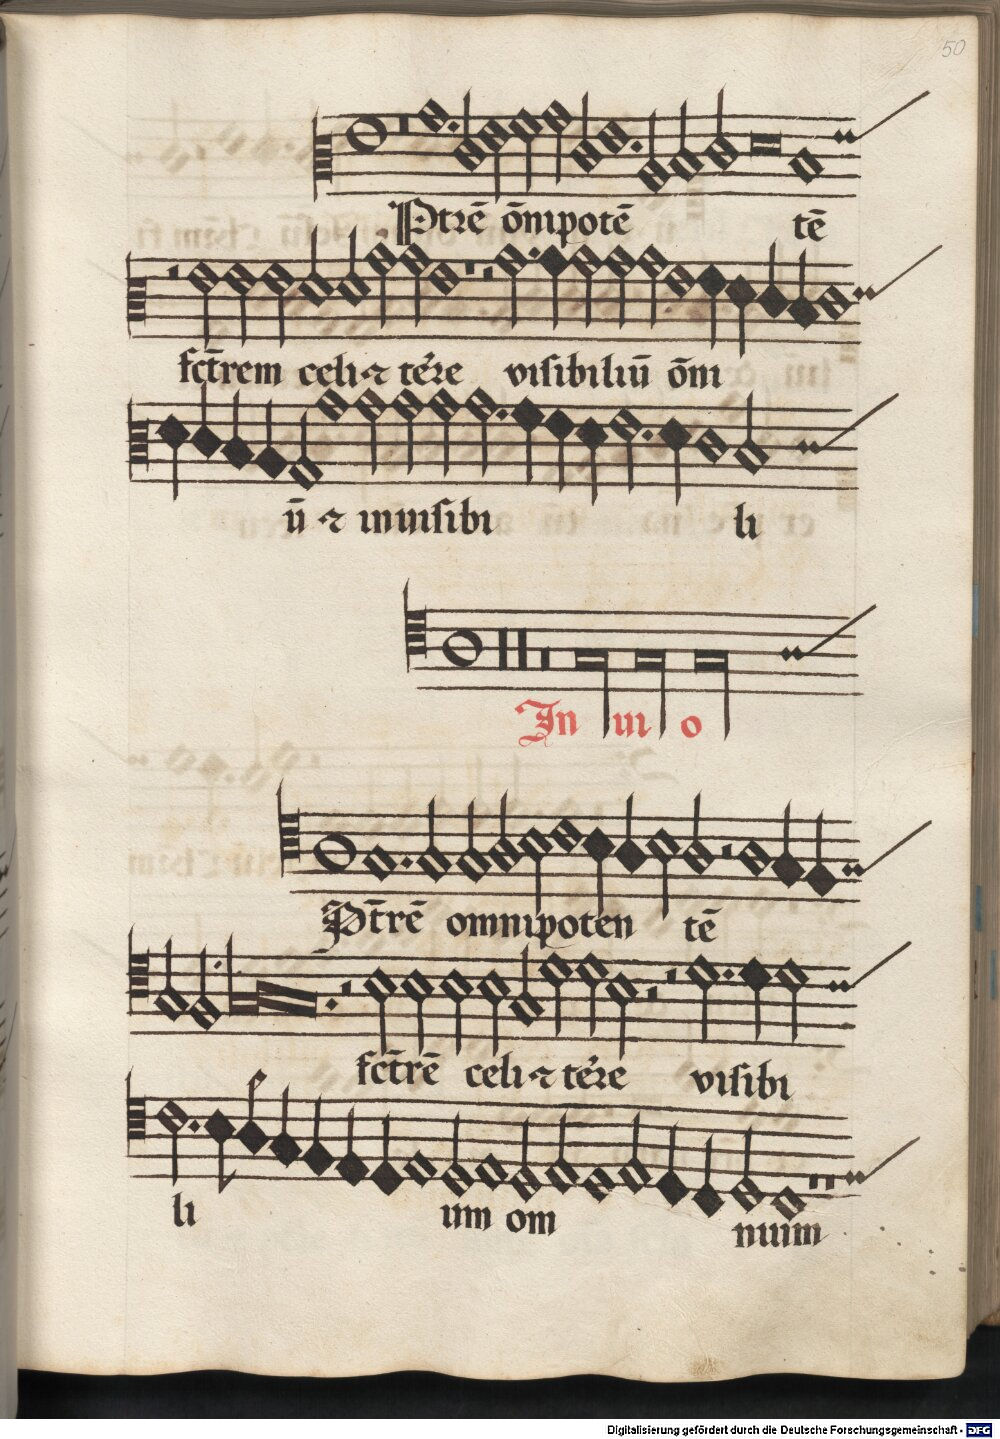 50
Ptrē ōmpotē tē
fct̄rem celi ⁊ tērre visibiliū ōm
ū ⁊ inuisibi li
In iii o
Pt̄rē omnipoten tē
fct̄rē celi ⁊ tērre visibi
li um om nium
Digitalisierung gefördert durch die Deutsche Forschungsgemeinschaft - DFG